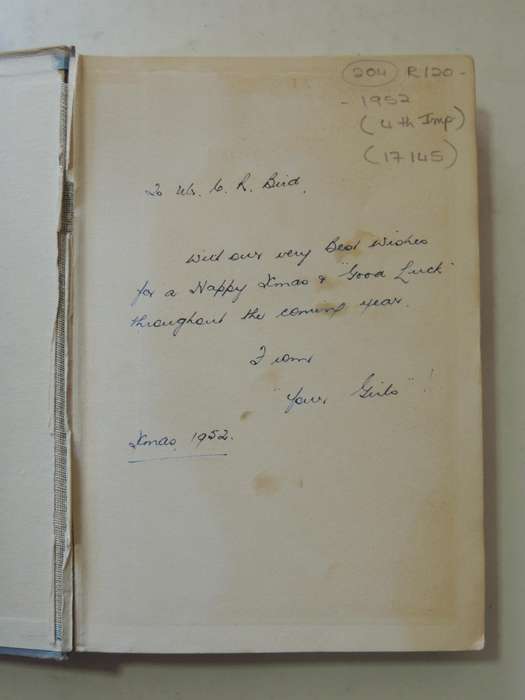 204 R120-
- 1952
(4th Imp)
(17145)
To Mr. C. R. Bird,
With our very Best Wishes
for a Happy Xmas & "Good Luck"
throughout the coming year.
From
"Your Girls"!
Xmas, 1952.